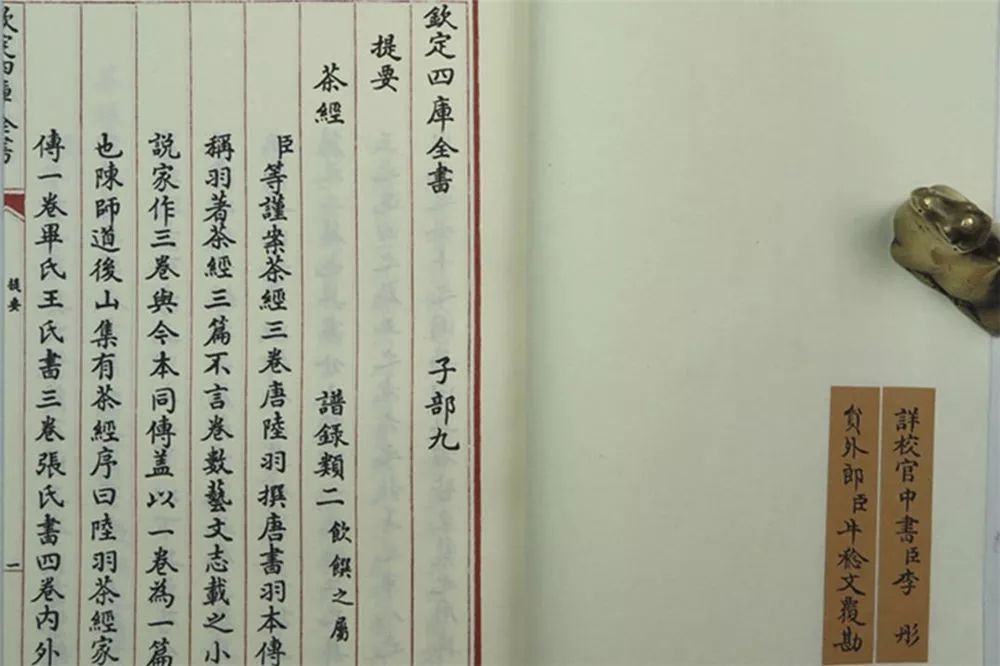 詳校官中書臣李彤
員外郎臣牛稔文覆勘
欽定四庫全書 子部九
提要
茶經 譜錄類二 飲饌之屬
臣等謹案茶經三卷唐陸羽撰唐書羽本傳
稱羽著茶經三篇不言卷數藝文志載之小
說家作三卷與今本同傳蓋以一卷為一篇
也陳師道後山集有茶經序曰陸羽茶經家
傳一卷畢氏王氏書三卷張氏書四卷內外
欽定四庫全書
提要
一